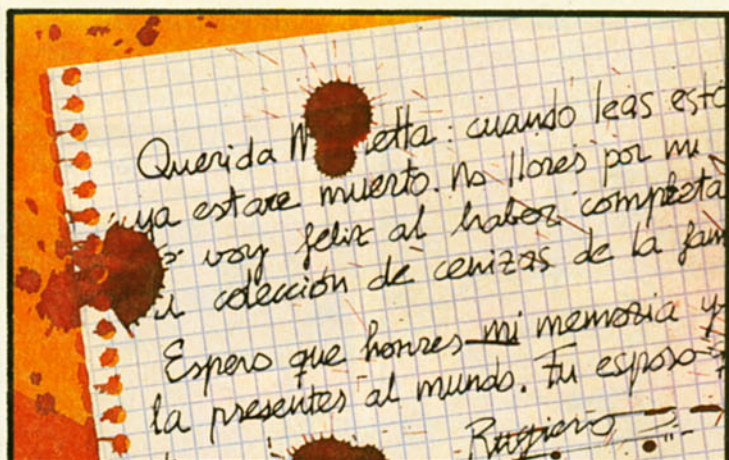 Querida M etta: cuando leas esto
ya estare muerto. No llores por mi
voy feliz al haber completa
colección de cenizas de la fam
Espero que honres mi memoria y
la presentes al mundo. Tu esposo
Ruggiero